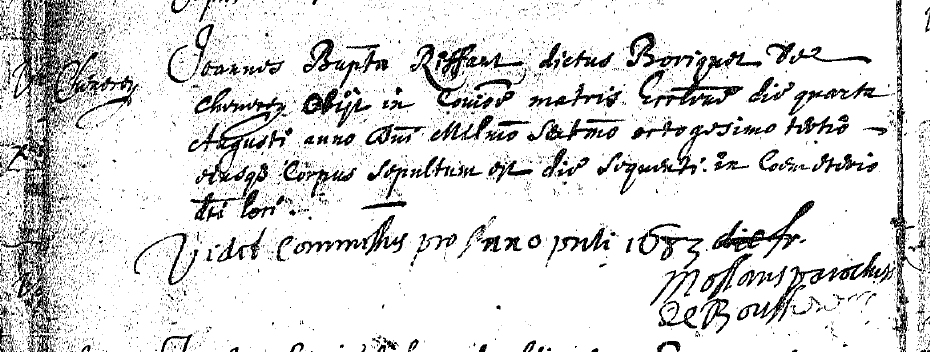 Chenerey
Joannes Bapta Riffaut dictus Boriquet de
Chenerey Obijt in Comoē matris Ecclesiae die quarta
Augusti anno Dni Millmo Sextmo octogesimo tertio
eiusqs Corpus Sepultum est die Sequenti in Coemeterio
dti loci.
Vidit Commissus pro Anno puli 1683
parochus
de